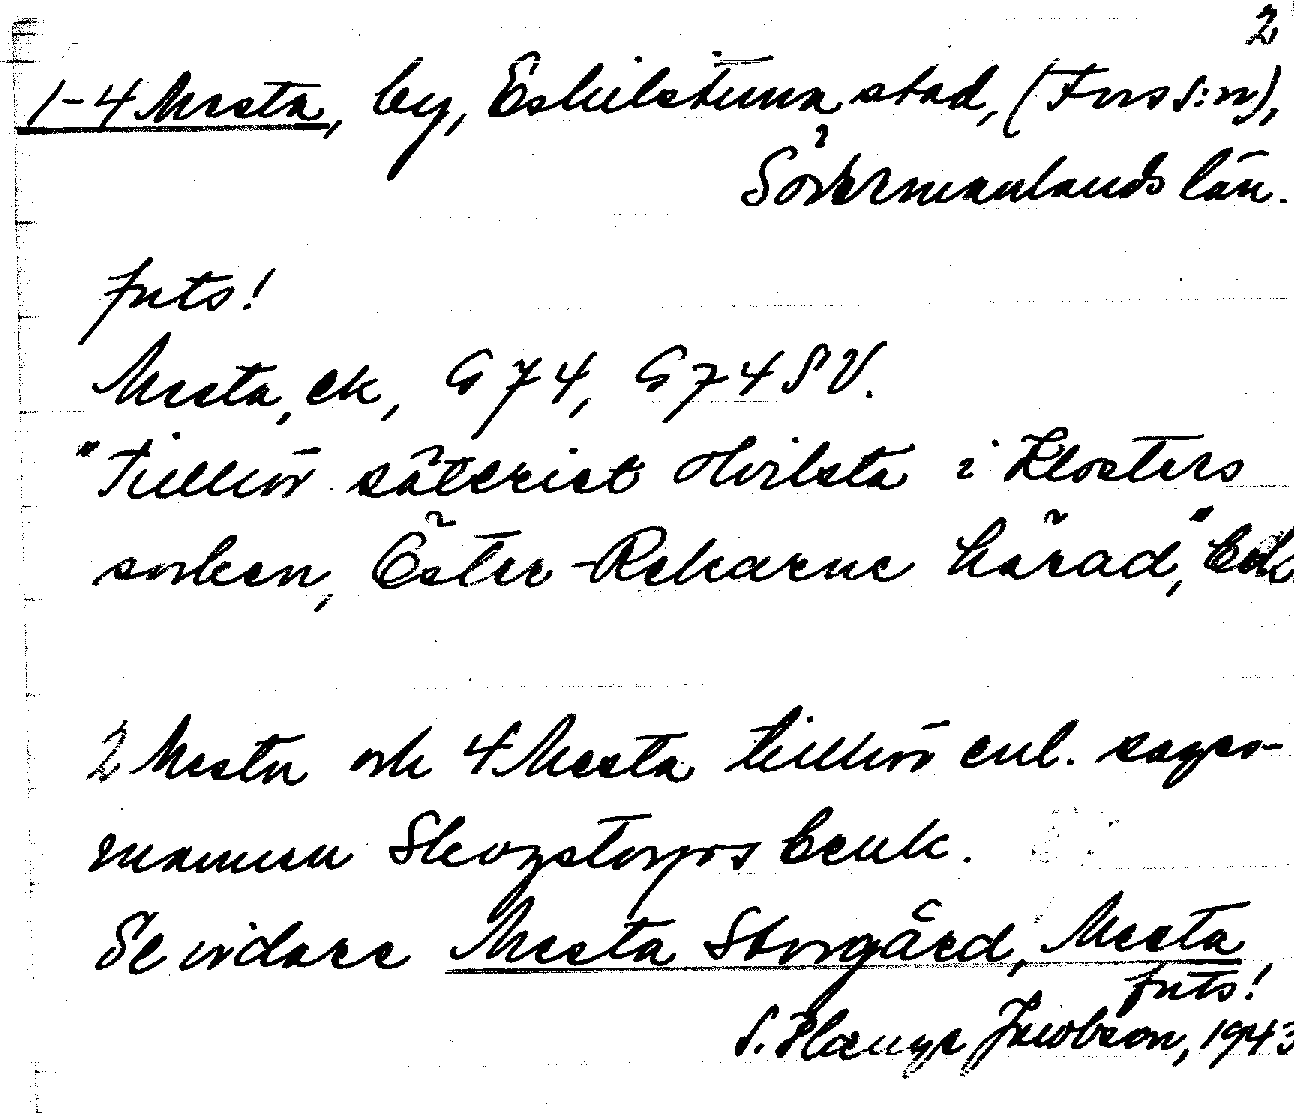 2
1-4 Mesta, by, Eskilstuna stad, (Fors s:n),
Södermanlands län.
forts!
Mesta, ek, G 74, G 74 SV.
"Tillhör säteriet Hvilsta i Klosters
socken, Öster-Rekarne härad,"
2 Mesta och 4 Mesta tillhör enl. sages-
mannen Skogstorps bruk.
Se vidare Mesta Storgård, Mesta
forts!
S. Jacobson, 1943